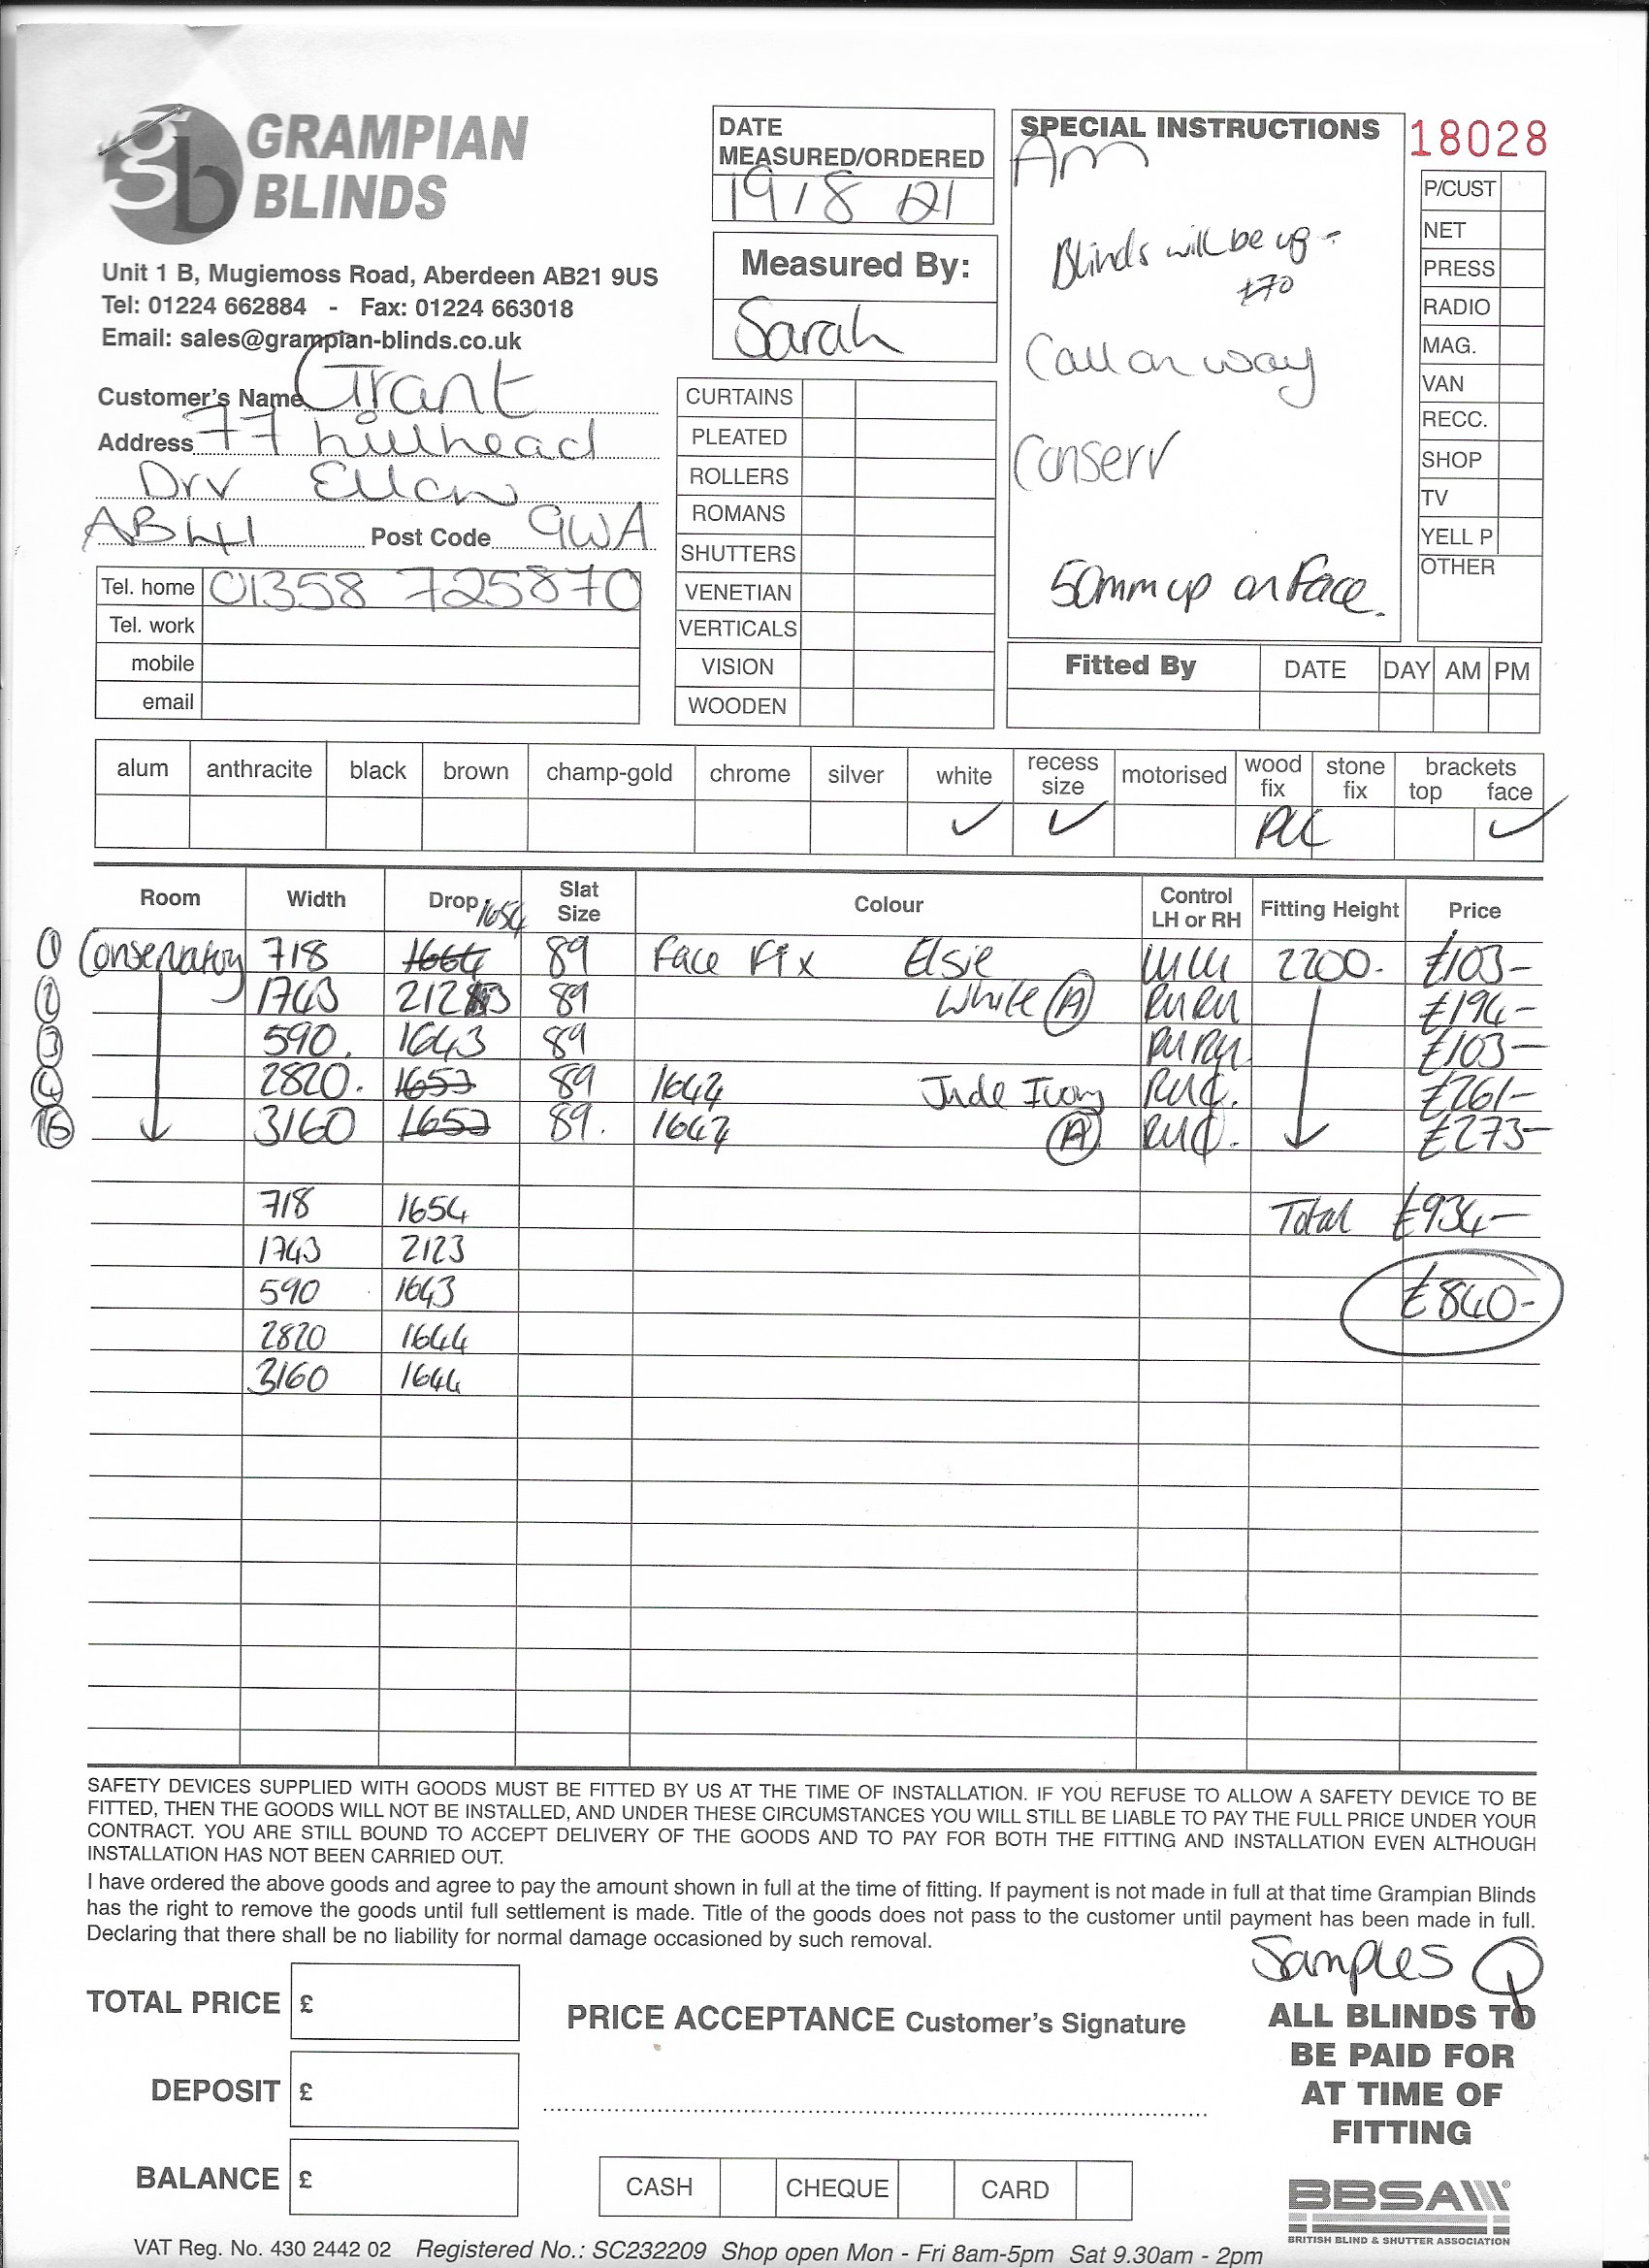 gb GRAMPIAN BLINDS
Unit 1 B, Mugiemoss Road, Aberdeen AB21 9US
Tel: 01224 662884 - Fax: 01224 663018
Email: sales@grampian-blinds.co.uk
Customer's Name Grant
Address 77 hillhead
Drv Ellon
AB41 Post Code 9WA
Tel. home 01358 725870
Tel. work
mobile
email
DATE MEASURED/ORDERED
19/8 21
Measured By:
Sarah
CURTAINS
PLEATED
ROLLERS
ROMANS
SHUTTERS
VENETIAN
VERTICALS
VISION
WOODEN
SPECIAL INSTRUCTIONS
Am
Blinds will be up -
£70
Call on way
Conserv
50mm up on Face.
18028
P/CUST
NET
PRESS
RADIO
MAG.
VAN
RECC.
SHOP
TV
YELL P
OTHER
Fitted By DATE DAY AM PM
alum anthracite black brown champ-gold chrome silver white recess size motorised wood fix stone fix brackets top face
✓ ✓ ✓
Room Width Drop Slat Size Colour Control LH or RH Fitting Height Price
1654
① Conservatory 718 1664 89 Face Fix Elsie 2200. £103-
② 1743 2123 89 White Ⓐ £194-
③ 590. 1643 89 £103-
④ 2820. 1653 89 1644 Jude Ivory £261-
3160 1653 89. 1644 Ⓐ £273-
718 1654 Total £934-
1743 2123
590 1643 £840-
2820 1644
3160 1644
SAFETY DEVICES SUPPLIED WITH GOODS MUST BE FITTED BY US AT THE TIME OF INSTALLATION. IF YOU REFUSE TO ALLOW A SAFETY DEVICE TO BE
FITTED, THEN THE GOODS WILL NOT BE INSTALLED, AND UNDER THESE CIRCUMSTANCES YOU WILL STILL BE LIABLE TO PAY THE FULL PRICE UNDER YOUR
CONTRACT. YOU ARE STILL BOUND TO ACCEPT DELIVERY OF THE GOODS AND TO PAY FOR BOTH THE FITTING AND INSTALLATION EVEN ALTHOUGH
INSTALLATION HAS NOT BEEN CARRIED OUT.
I have ordered the above goods and agree to pay the amount shown in full at the time of fitting. If payment is not made in full at that time Grampian Blinds
has the right to remove the goods until full settlement is made. Title of the goods does not pass to the customer until payment has been made in full.
Declaring that there shall be no liability for normal damage occasioned by such removal.
Samples
TOTAL PRICE £
DEPOSIT £
BALANCE £
PRICE ACCEPTANCE Customer's Signature
CASH CHEQUE CARD
ALL BLINDS TO
BE PAID FOR
AT TIME OF
FITTING
BBSA
BRITISH BLIND & SHUTTER ASSOCIATION
VAT Reg. No. 430 2442 02 Registered No.: SC232209 Shop open Mon - Fri 8am-5pm Sat 9.30am - 2pm